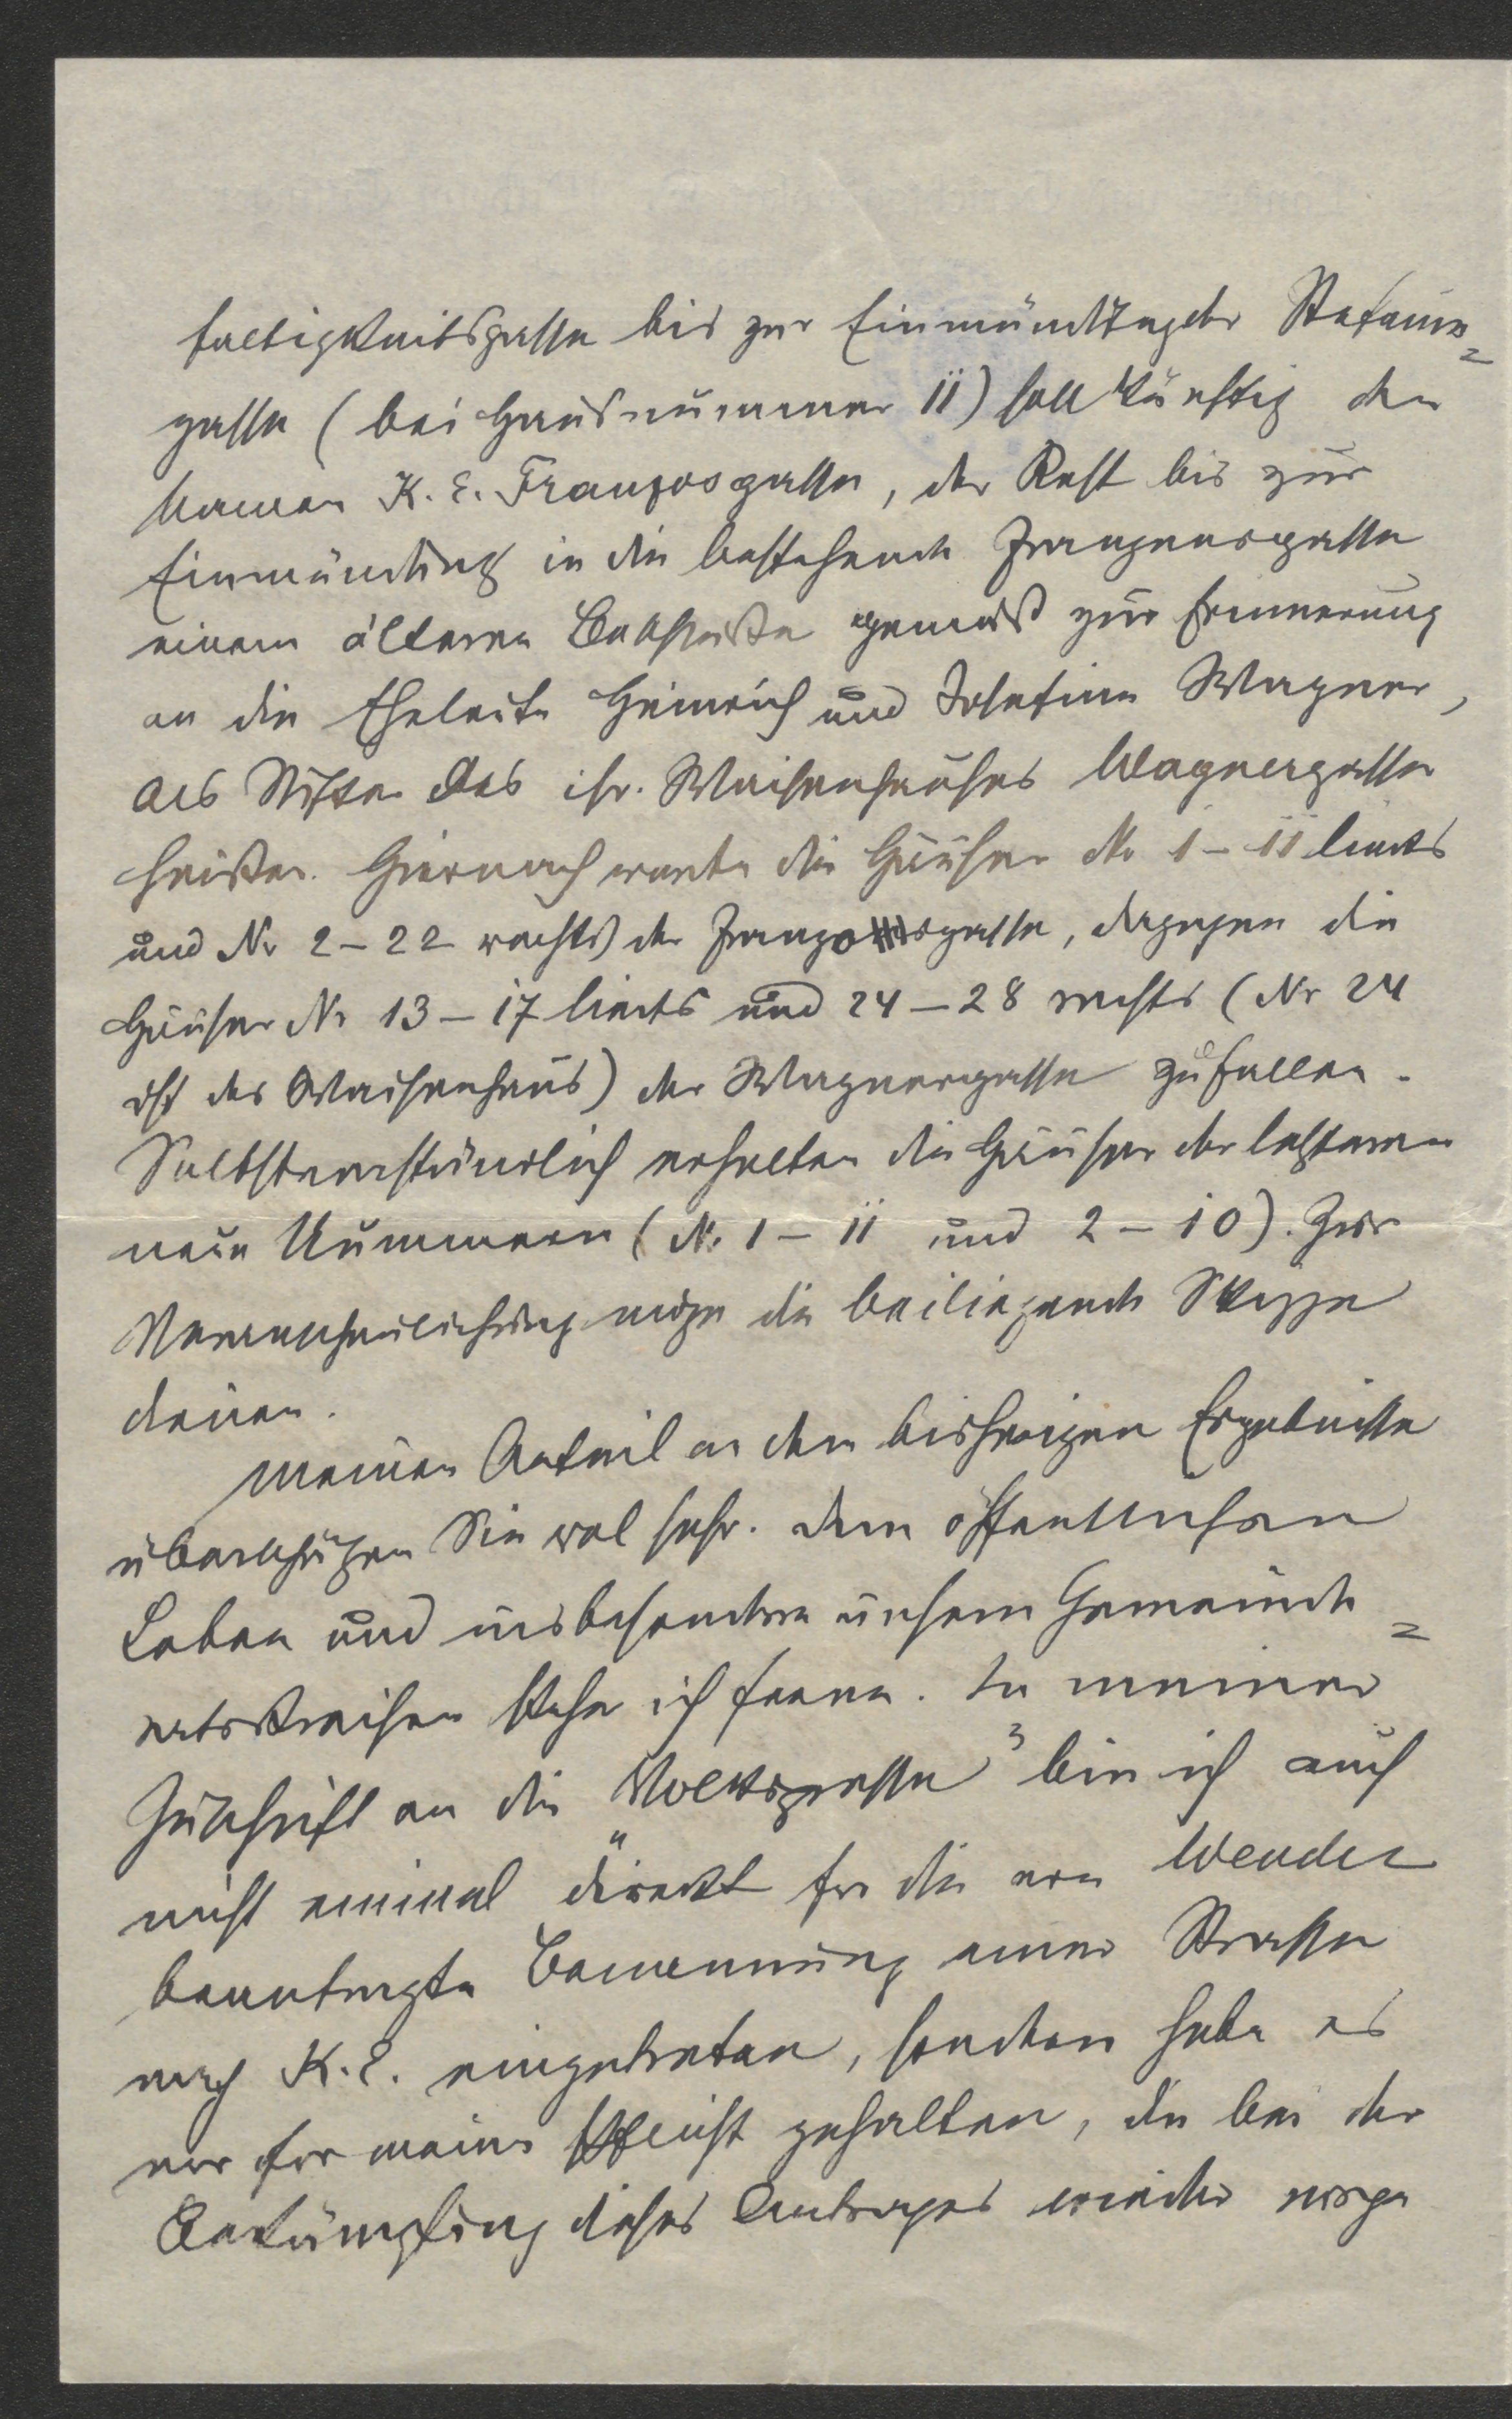 faltigkeitsgasse bis zur Einmündung der Stefanie=
gasse (bei Hausnummer 11) soll künftig den
Namen K. E. Franzosgasse, der Rest bis zur
Einmündung in die bestehende Franzensgasse
einem älteren Beschlusse gemäß zur Erinnerung
an die Eheleute Heinrich und Josefine Wagner,
als Stifter des isr. Waisenhauses Wagnergasse
heißen. Hiernach werden die Häuser No 1 – 11 links
und Nr 2 – 22 rechts der Franzosgasse, dagegen die
Häuser Nr 13 – 17 links und 24 – 28 rechts (Nr 24
ist das Waisenhaus) der Wagnergasse zufallen.
Selbstverständlich erhalten die Häuser der letzteren
neue Nummern (N. 1 – 11 und 2 – 10). Zur
Veranschaulichung möge die beiliegende Skizze
dienen.
Meinen Anteil an dem bisherigen Ergebnisse
überschätzen Sie wol sehr. Dem öffentlichen
Leben und insbesondere unsern Gemeinde=
ratskreisen stehe ich ferne. In meiner
Zuschrift an die „Volkspresse" bin ich auch
nicht einmal direkt für die von Wender
beantragte Benennung einer Strasse
nach K. E. eingetreten, sondern habe es
nur für meine Pflicht gehalten, die bei der
Bekämpfung dieses Antrages wieder